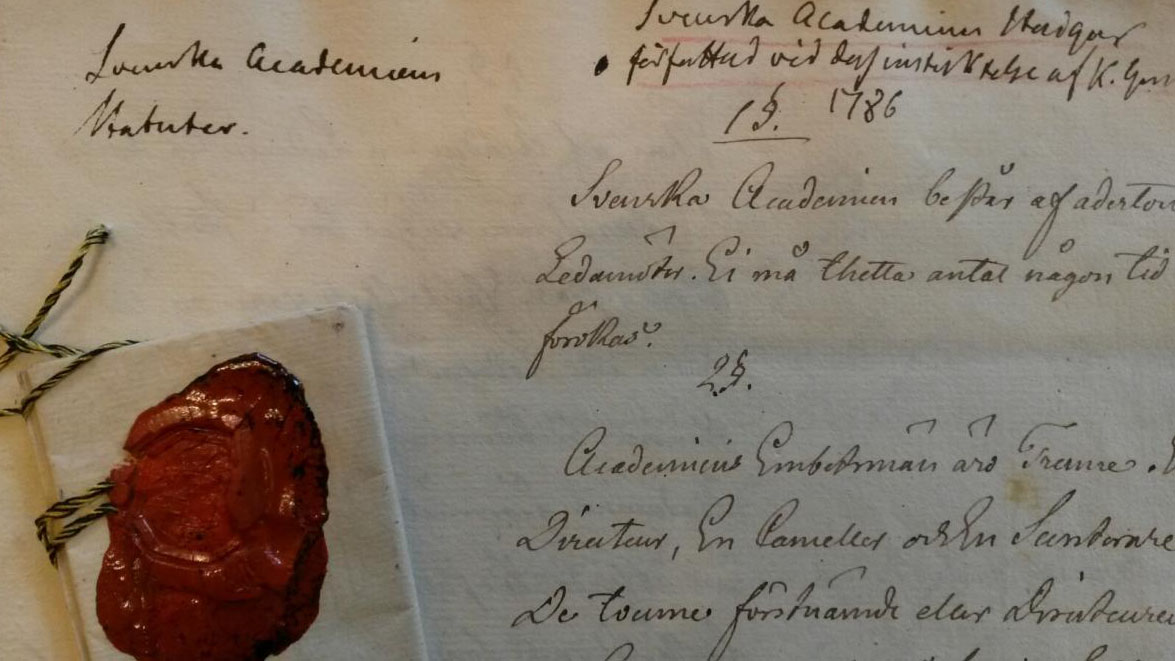 Svenska Academiens
Statuter.
Svenska Academiens Stadgar
författad vid dess instiktelse af K. Gus
1786
1 §.
Svenska Academien består af aderton
Ledamöter. Ei må thetta antal någon tid
förökas.
2 §.
Academiens Embetsmän äro Trenne.
Directeur, En Canceller och En Secreterare
De tvenne förstnämde eller Directeuren